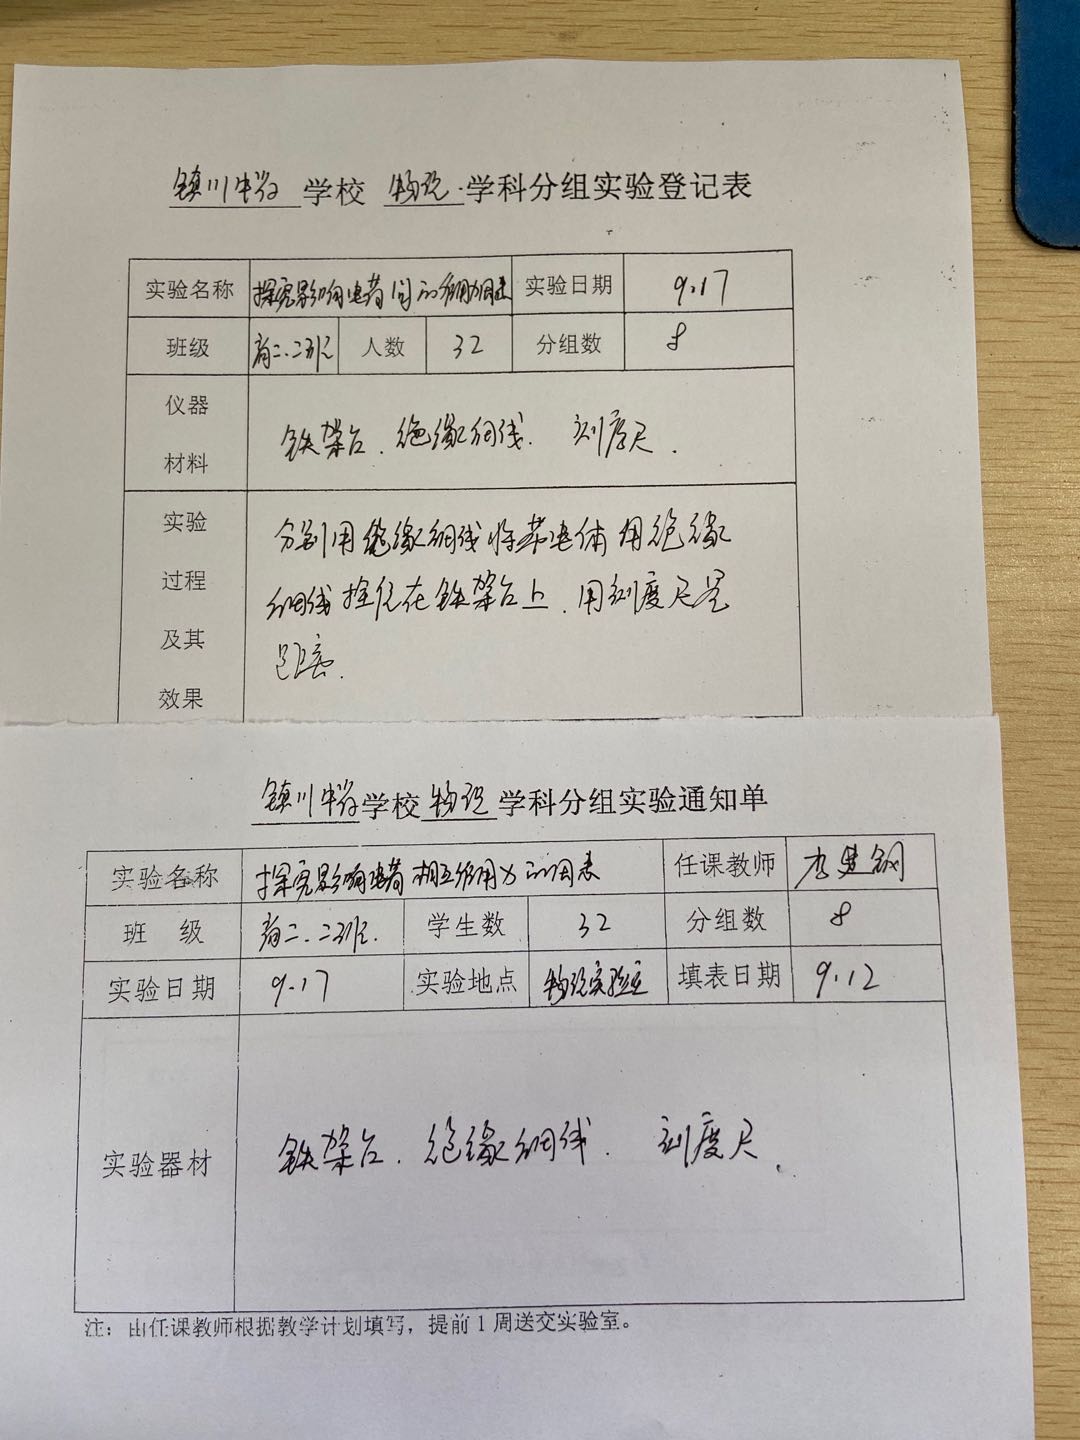 镇川中学 学校 物理 学科分组实验登记表
实验名称 探究影响电荷间的作用力因素 实验日期 9.17
班级 高二.二班 人数 32 分组数 8
仪器
材料
铁架台.绝缘细线. 刻度尺.
实验
过程
及其
效果
分别用绝缘细线将带电体用绝缘
细线拴住在铁架台上.用刻度尺量
距离.
镇川中学学校物理学科分组实验通知单
实验名称 探究影响电荷相互作用力的因素 任课教师
班 级 高二.二班. 学生数 32 分组数 8
实验日期 9.17 实验地点 物理实验室 填表日期 9.12
实验器材 铁架台.绝缘细线. 刻度尺.
注：由任课教师根据教学计划填写，提前1周送交实验室。